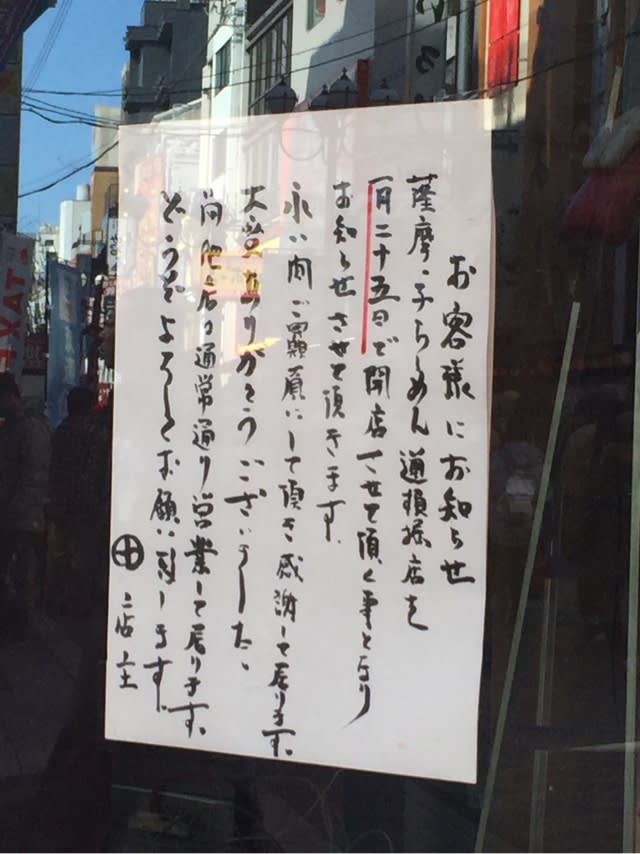 お客様にお知らせ
薩摩っ子らーめん道頓堀店を
一月二十五日で閉店させて頂く事となり
お知らせさせて頂きます。
永い間ご贔屓にして頂き感謝して居ります。
大変ありがとうございました。
尚他店は通常通り営業して居ります。
どうぞよろしくお願い致します。
店主